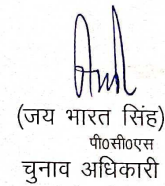 (जय भारत सिंह)
पी०सी०एस
चुनाव अधिकारी